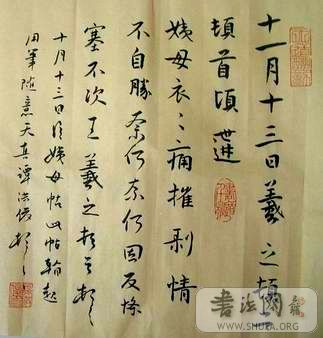 十一月十三日羲之頓
頓首頃遘
姨母哀哀痛摧剥情
不自勝奈何奈何因反慘
塞不次王羲之頓首頓
十月十三日臨姨母帖此帖
用筆隨意天真譚
書法網
WWW.SHUFA.ORG